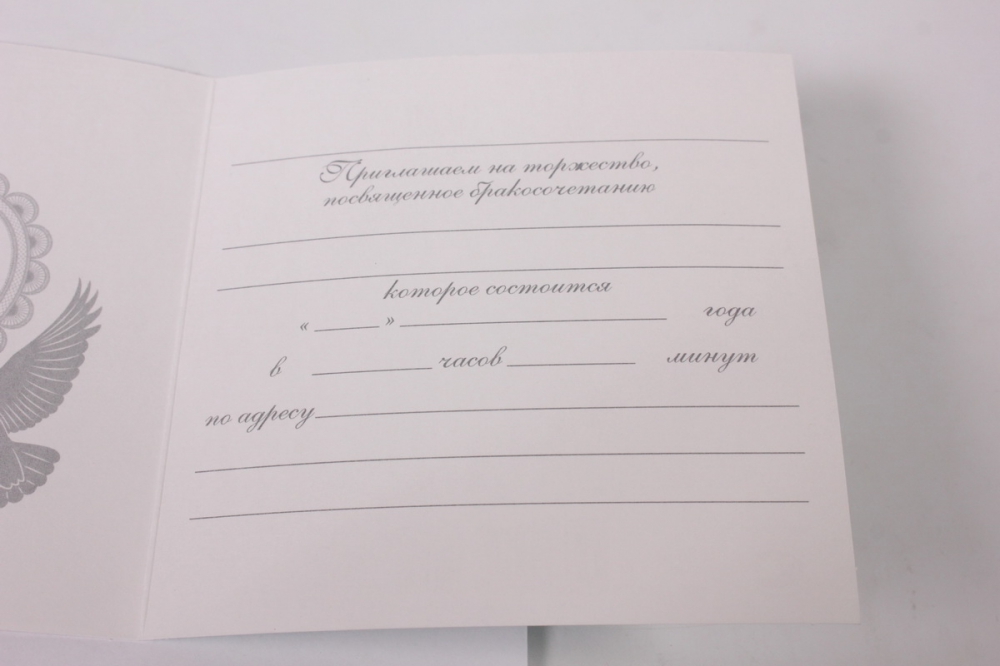 Приглашаем на торжество,
посвященное бракосочетанию
которое состоится
« ____ » ____________ года
в ______ часов ______ минут
по адресу